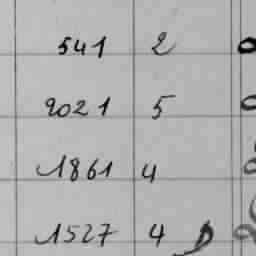 541 2
2021 5
1861 4
1527 4 D